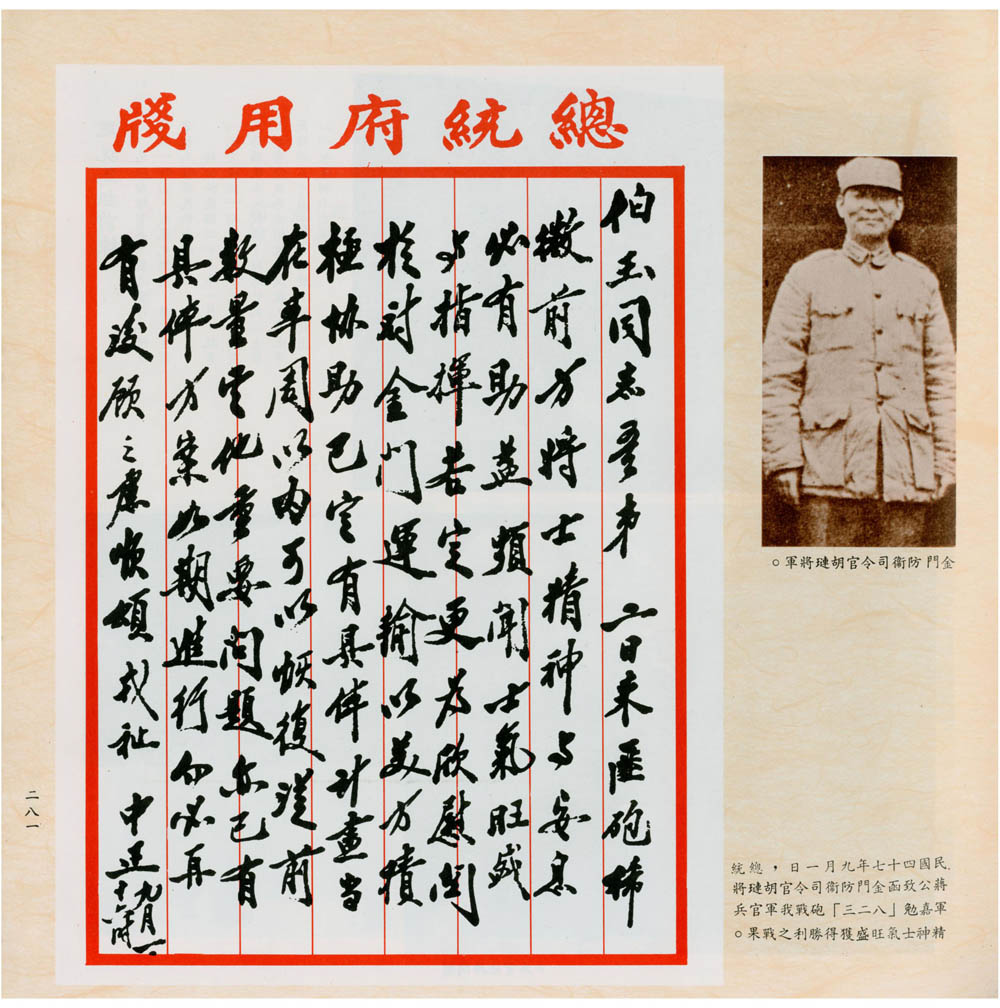 總統府用牋
伯玉同志吾弟 二日來匪砲稀
微前方將士精神與安息
必有助益頻聞士氣旺盛
與指揮若定更為欣慰關
於對金門運輸以美方積
極協助已定有具体計畫當
在本周以內可以恢復從前
數量其他重要問題亦已有
具体方案如期進行勿必再
有後顧之慮順頌戎祉 中正
九月一
十六時
金門防衛司令官胡璉將軍。
民國四十七年九月一日，總統
蔣公致函金門防衛司令官胡璉將
軍嘉勉「八二三」砲戰我軍官兵
精神士氣旺盛獲得勝利之戰果。
二八一